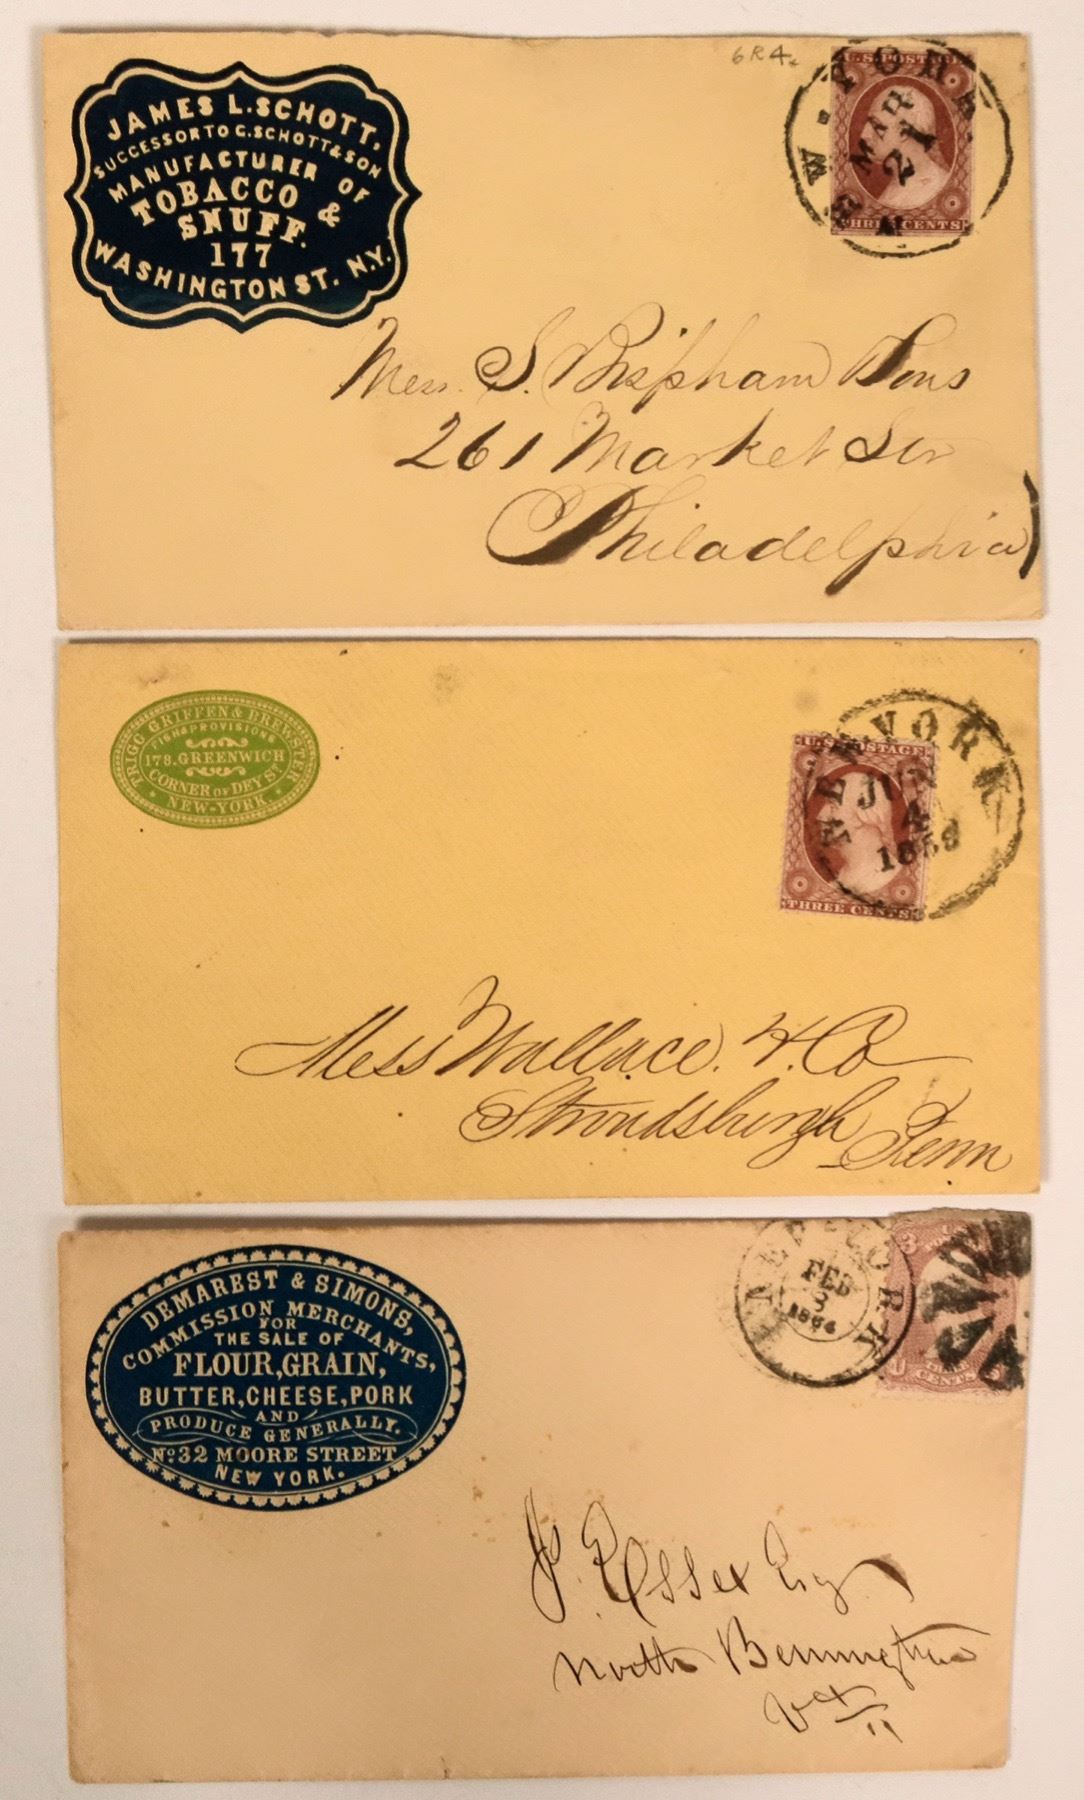 JAMES L. SCHOTT.
SUCCESSOR TO C. SCHOTT & SON
MANUFACTURER OF
TOBACCO &
SNUFF.
177
WASHINGTON ST. N.Y.
6R4
U.S. POSTAGE
THREE CENTS
NEW-YORK
MAR
21
Mess. S. Bispham Sons
261 Market Str
Philadelphia
TRIGG GRIFFEN & BREWSTER
FISH & PROVISIONS
178. GREENWICH
CORNER OF DEY ST.
NEW-YORK.
U.S. POSTAGE
THREE CENTS
NEW-YORK
4
Mess Wallace & Co
Stroudsburgh
Penn
DEMAREST & SIMONS,
COMMISSION MERCHANTS,
FOR
THE SALE OF
FLOUR, GRAIN,
BUTTER, CHEESE, PORK
AND
PRODUCE GENERALLY.
No. 32 MOORE STREET
NEW YORK.
NEW-YORK
FEB
3
CENTS
Essex Esq
North Bennington